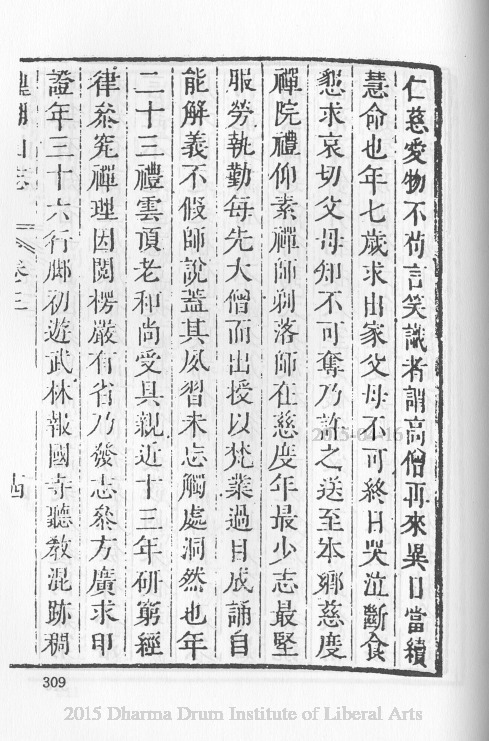 仁慈愛物不苟言笑識者謂高僧再來異日當續
慧命也年七歲求出家父母不可終日哭泣斷食
懇求哀切父母知不可奪乃許之送至本鄉慈度
禪院禮仰素禪師剃落師在慈度年最少志最堅
服勞執勤每先大僧而出授以梵業過目成誦自
能解義不假師說蓋其夙習未忘觸處洞然也年
二十三禮雲頂老和尚受具親近十三年研窮經
律叅究禪理因閱楞嚴有省乃發志叅方廣求印
證年三十六行脚初遊武林報國寺聽教混跡稠
山志 卷三 十四
309
2015-04-16
2015 Dharma Drum Institute of Liberal Arts